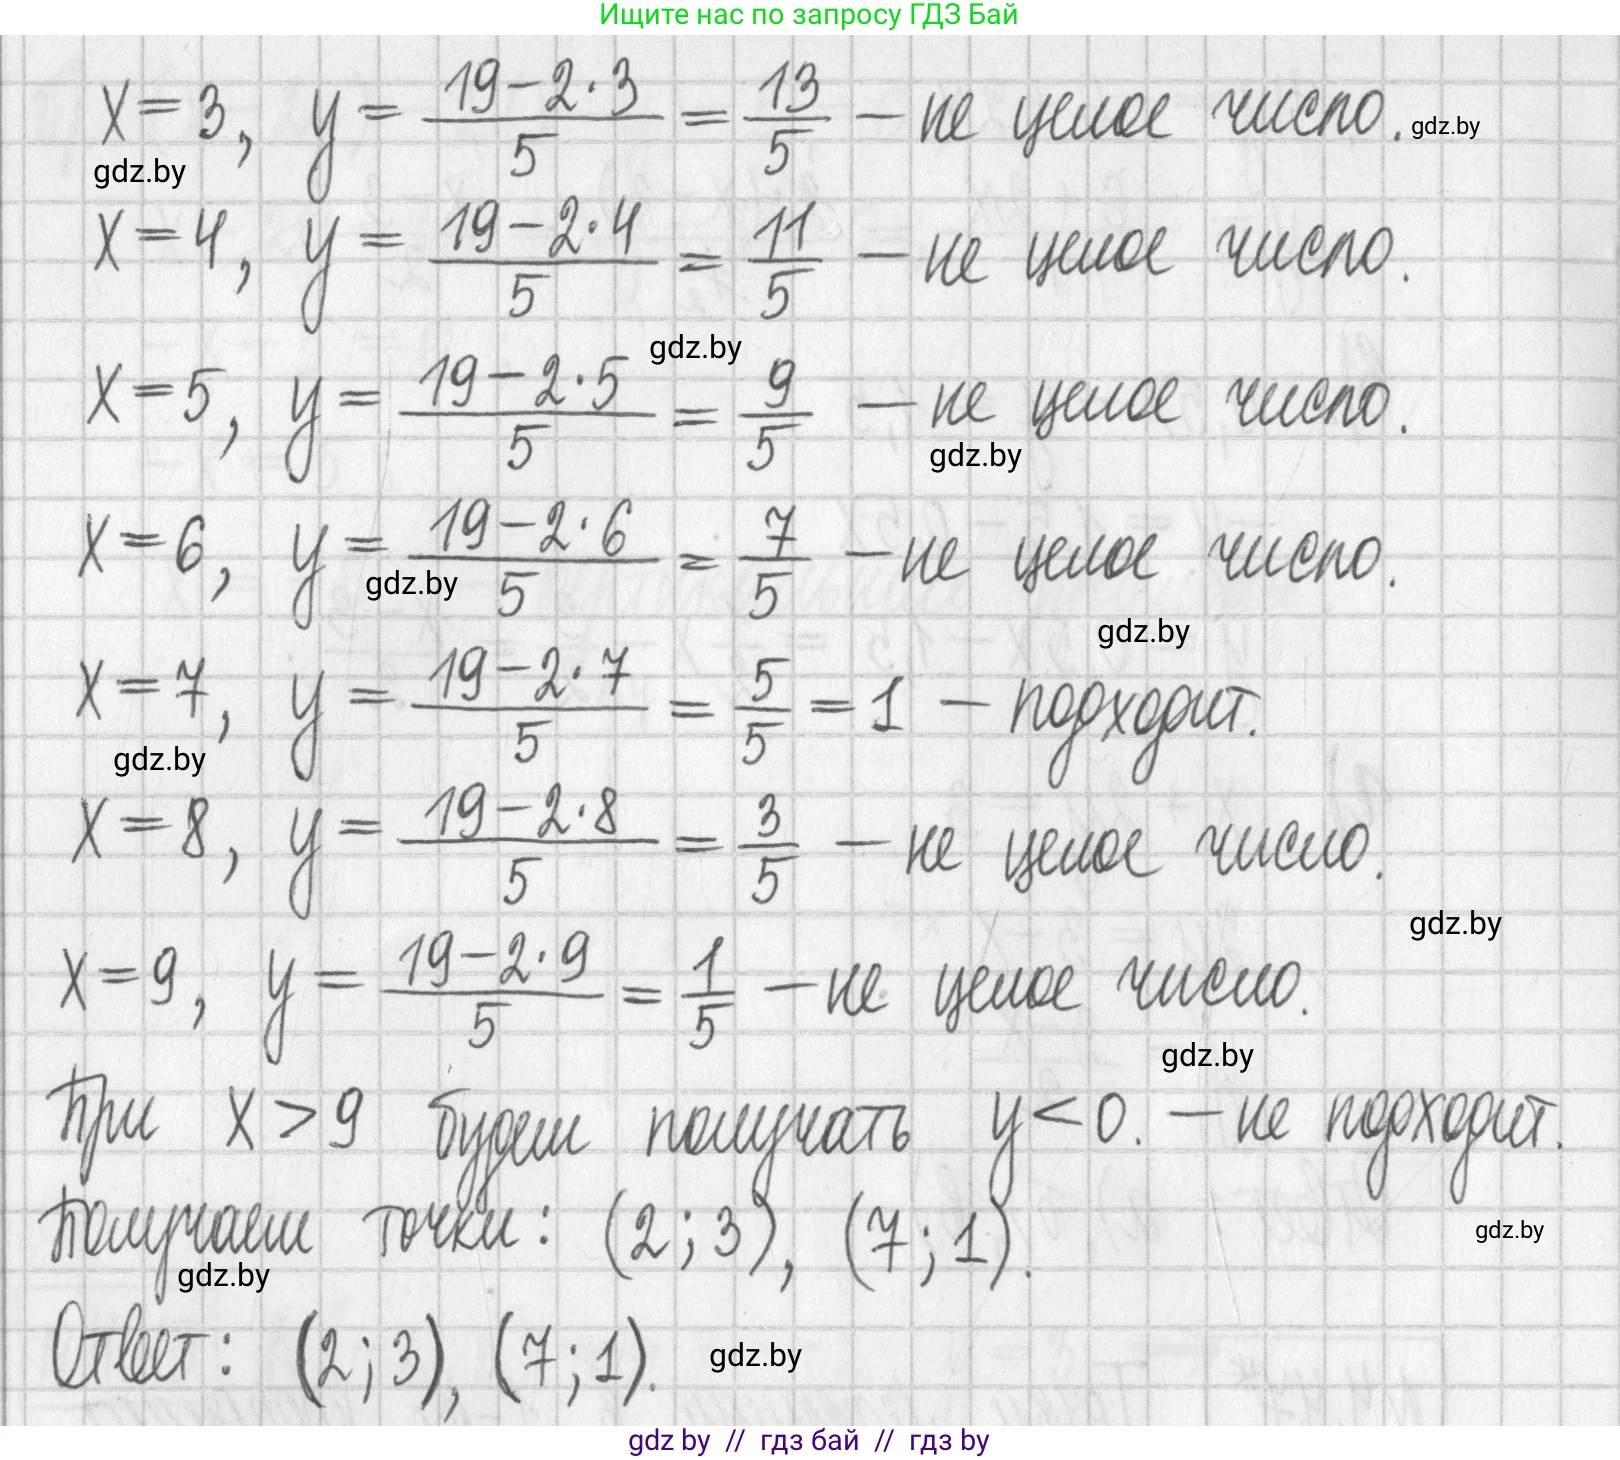 Ищите нас по запросу ГДЗ Бай
x = 3, y = (19 - 2·3)/5 = 13/5 – не целое число. gdz.by
gdz.by
x = 4, y = (19 - 2·4)/5 = 11/5 – не целое число.
gdz.by
x = 5, y = (19 - 2·5)/5 = 9/5 – не целое число.
gdz.by
x = 6, y = (19 - 2·6)/5 = 7/5 – не целое число.
gdz.by
gdz.by
x = 7, y = (19 - 2·7)/5 = 5/5 = 1 – подходит.
gdz.by
x = 8, y = (19 - 2·8)/5 = 3/5 – не целое число.
gdz.by
x = 9, y = (19 - 2·9)/5 = 1/5 – не целое число.
gdz.by
При x > 9 будем получать y < 0. – не подходит.
Получаем точки: (2; 3), (7; 1). gdz.by
gdz.by
Ответ: (2; 3), (7; 1). gdz.by
gdz by // гдз бай // гдз by